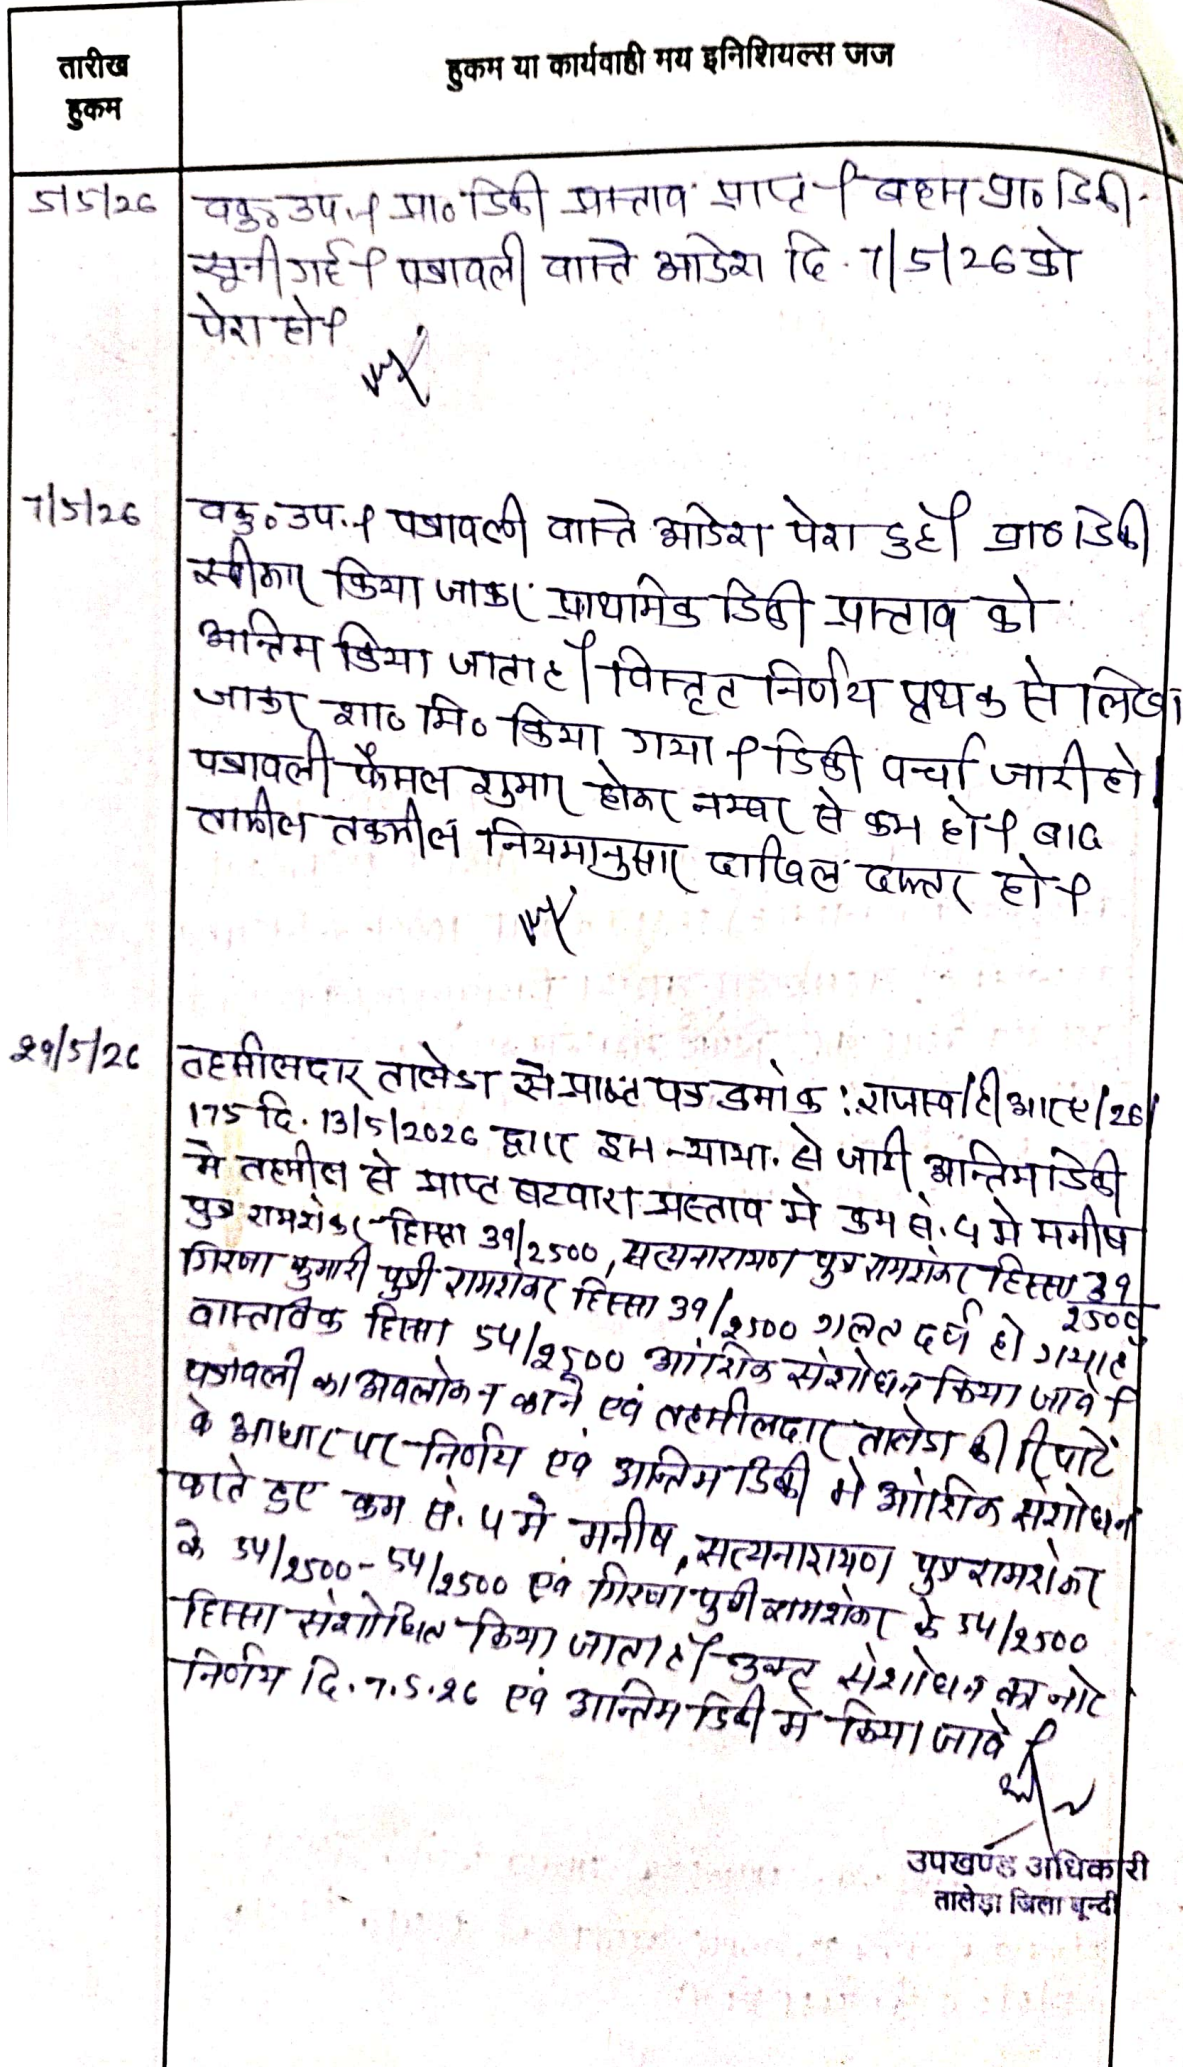 तारीख
हुकम
हुकम या कार्यवाही मय इनिशियल्स जज
5/5/26
वकु० उप.। प्रा० डिक्री प्रस्ताव प्राप्त। बहस प्रा० डिक्री
सूनी गई। पत्रावली वास्ते आदेश दि. 7/5/26 को
पेश हो।
7/5/26
वकु० उप.। पत्रावली वास्ते आदेश पेश हुई। प्रा० डिक्री
स्वीकार किया जाकर प्राथमिक डिक्री प्रस्ताव को
अन्तिम किया जाता है। विस्तृत निर्णय पृथक से लिखा
जाकर शा० मि० किया गया। डिक्री पर्चा जारी हो।
पत्रावली फैसल शुमार होकर नम्बर से कम हो। बाद
तामील तकमील नियमानुसार दाखिल दफ्तर हो।
29/5/26
तहसीलदार तालेडा से प्राप्त पत्र क्रमांक : राजस्व/टीआरए/26/
175 दि. 13/5/2026 द्वारा इस न्याया. से जारी अन्तिम डिक्री
मे तहसील से प्राप्त बटवारा प्रस्ताव मे क्रम सं. 4 मे मनीष
पुत्र रामशंकर हिस्सा 39/2500, सत्यनारायण पुत्र रामशंकर हिस्सा 39/2500
गिरजा कुमारी पुत्री रामशंकर हिस्सा 39/2500 गलत दर्ज हो गया है
वास्तविक हिस्सा 54/2500 आंशिक संशोधन किया जावे।
पत्रावली का अवलोकन करने एवं तहसीलदार तालेडा की रिपोर्ट
के आधार पर निर्णय एवं अन्तिम डिक्री मे आंशिक संशोधन
करते हुए क्रम सं. 4 मे मनीष, सत्यनारायण पुत्र रामशंकर
के 54/2500 - 54/2500 एवं गिरजा पुत्री रामशंकर के 54/2500
हिस्सा संशोधित किया जाता है। उक्त संशोधन का नोट
निर्णय दि. 7.5.26 एवं अन्तिम डिक्री मे किया जावे।
उपखण्ड अधिकारी
तालेड़ा जिला बून्दी